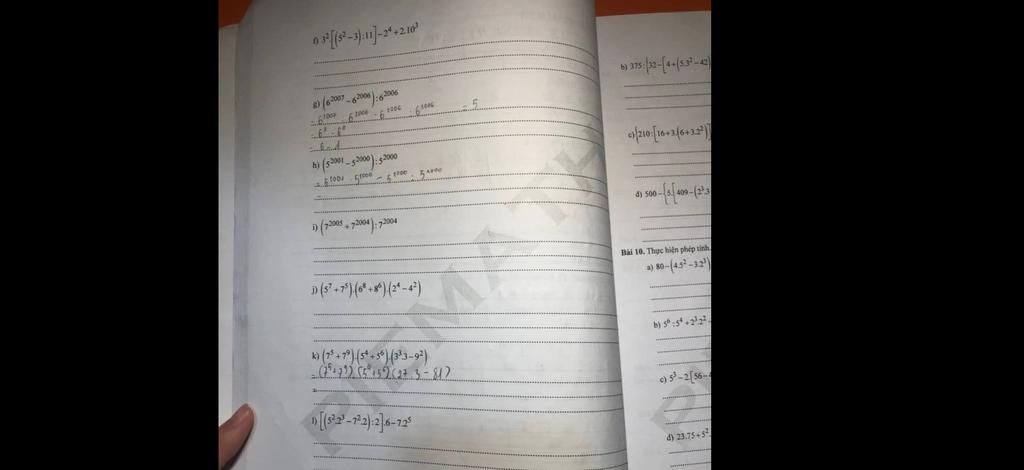 f) 3².[(5² – 3) : 11] – 2⁴ + 2.10³
g) (6²⁰⁰⁷ – 6²⁰⁰⁶) : 6²⁰⁰⁶
= 6²⁰⁰⁷ : 6²⁰⁰⁶ - 6²⁰⁰⁶ : 6²⁰⁰⁶ = 5
6 - 1
h) (5²⁰⁰¹ – 5²⁰⁰⁰) : 5²⁰⁰⁰
= 5²⁰⁰¹ : 5²⁰⁰⁰ - 5²⁰⁰⁰ : 5²⁰⁰⁰
=
i) (7²⁰⁰⁵ + 7²⁰⁰⁴) : 7²⁰⁰⁴
j) (5⁷ + 7⁵).(6⁸ + 8⁶).(2⁴ – 4²)
k) (7⁵ + 7⁹).(5⁴ + 5⁶).(3³.3 – 9²)
= (7⁵+7⁹).(5⁴+5⁶).(27.3 - 81)
=
l) [(5².2³ – 7².2) : 2].6 – 7.2⁵
b) 375 : {32 – [4 + (5.3² – 42)
c) {210 : [16 + 3.(6 + 3.2²)]
d) 500 – {5.[409 – (2³.3
Bài 10. Thực hiện phép tính.
a) 80 – (4.5² – 3.2³)
b) 5⁶ : 5⁴ + 2³.2²
c) 5³ – 2[56 –
d) 23.75 + 5².
PIEMATH